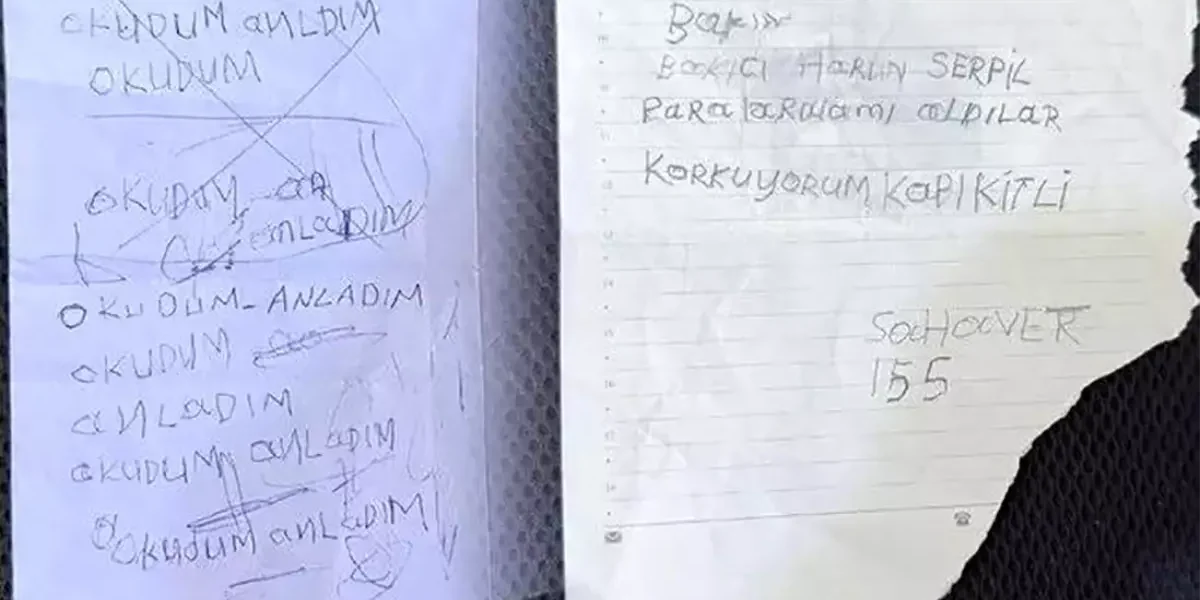 OKUDUM aNLDIM
OKUDUM
OKUDUM_aR
aNLaDIM
OKUDUM-ANLADIM
OKUDUM
aNLaDIM
OKUDUM aNLaDIM
OKUDUM aNLaDIM
BaKICI HARUN SERPİL
PaRaLaRıMı aLDILAR
KORKUYORUM KaPI KİTLİ
155